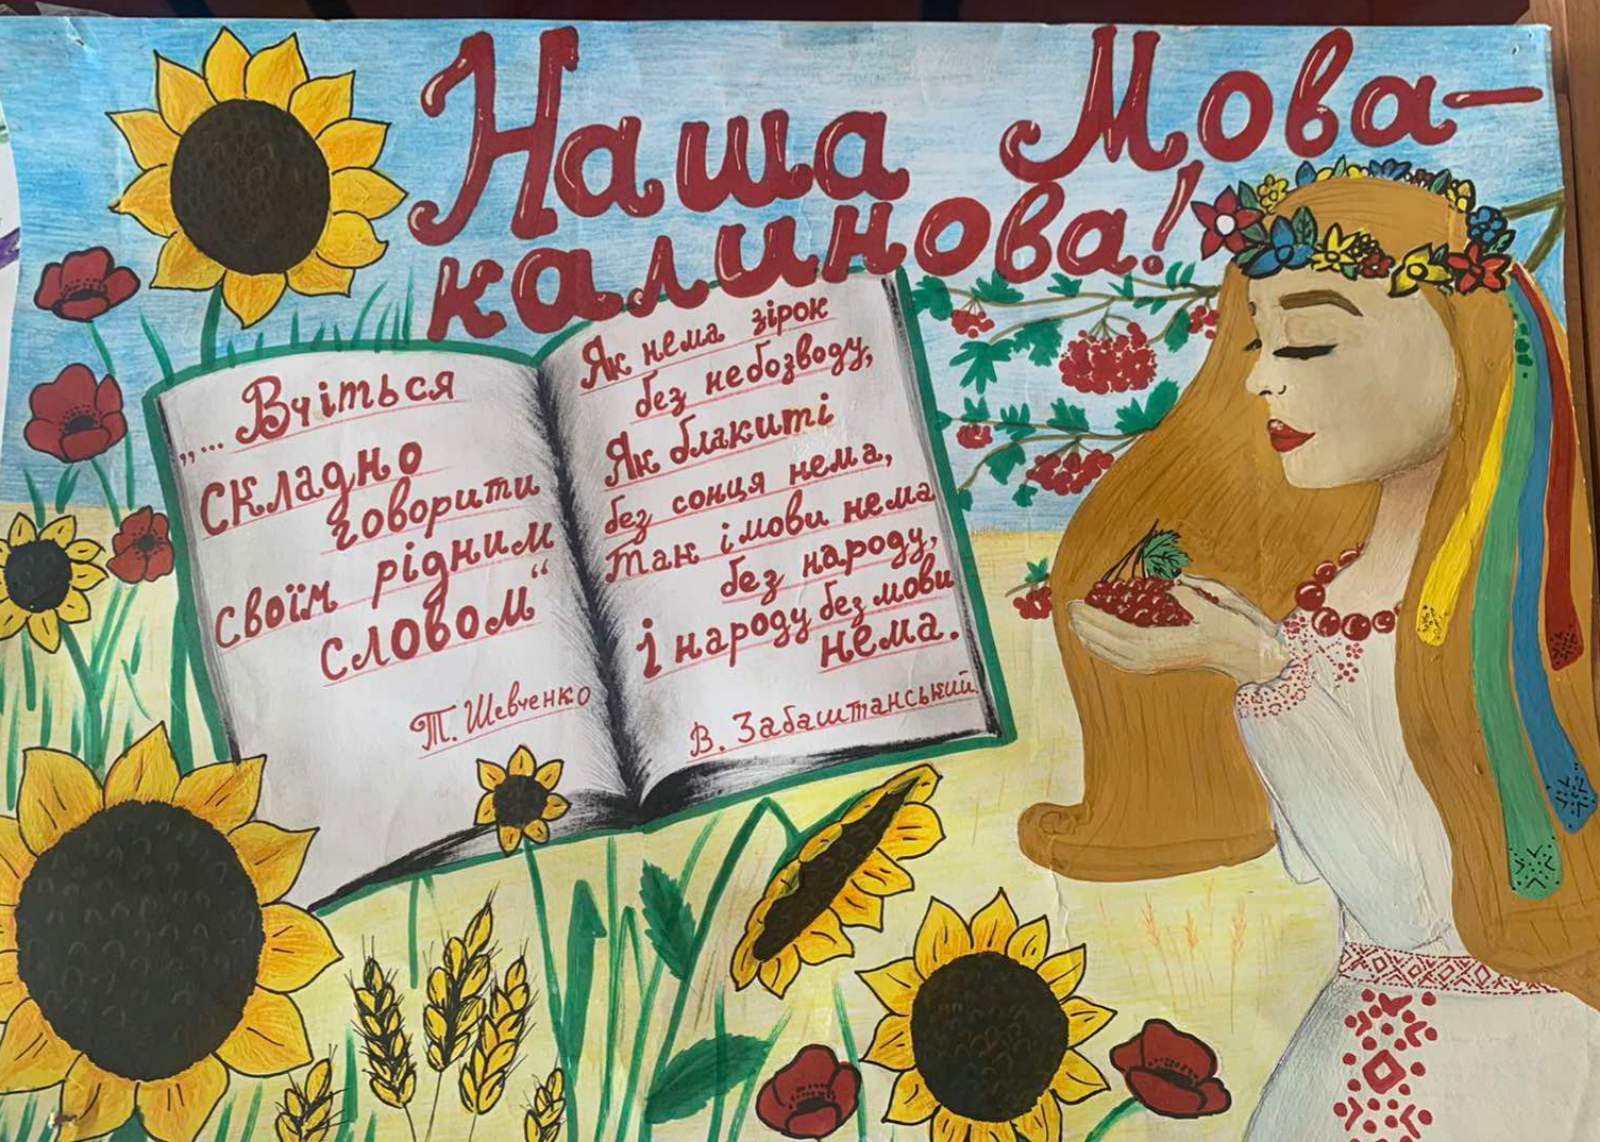 Наша Мова-
калинова!
„... Вчіться
складно
говорити
своїм рідним
словом“
Т. Шевченко
Як нема зірок
без небозводу,
Як блакиті
без сонця нема,
Так і мови нема
без народу,
і народу без мови
нема.
В. Забаштанський.